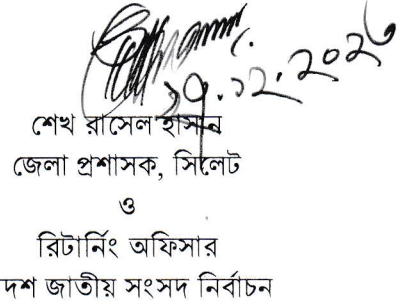 ১৭.১২.২০২৩
শেখ রাসেল হাসান
জেলা প্রশাসক, সিলেট
ও
রিটার্নিং অফিসার
দশ জাতীয় সংসদ নির্বাচন